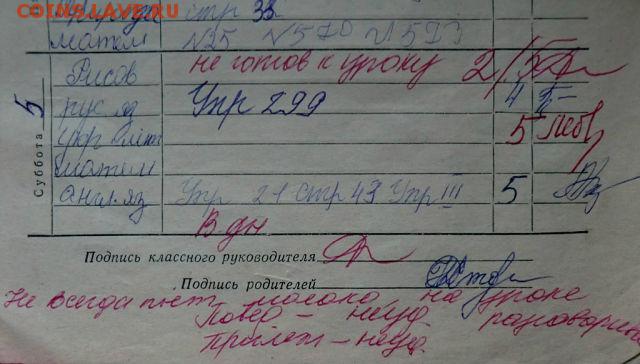 COINS.LAVE.RU
стр 33
матем N25 N5
Рисов не готов к уроку 2/5
5
Суббота
рус яз Упр 299 4
укр лит 5
матем
англ. яз Упр 21 стр 43 Упр III 5
В дн
Подпись классного руководителя
Подпись родителей
Не всегда пьет молоко на уроке
Повед – неуд разговарив
Прилеж – неуд.